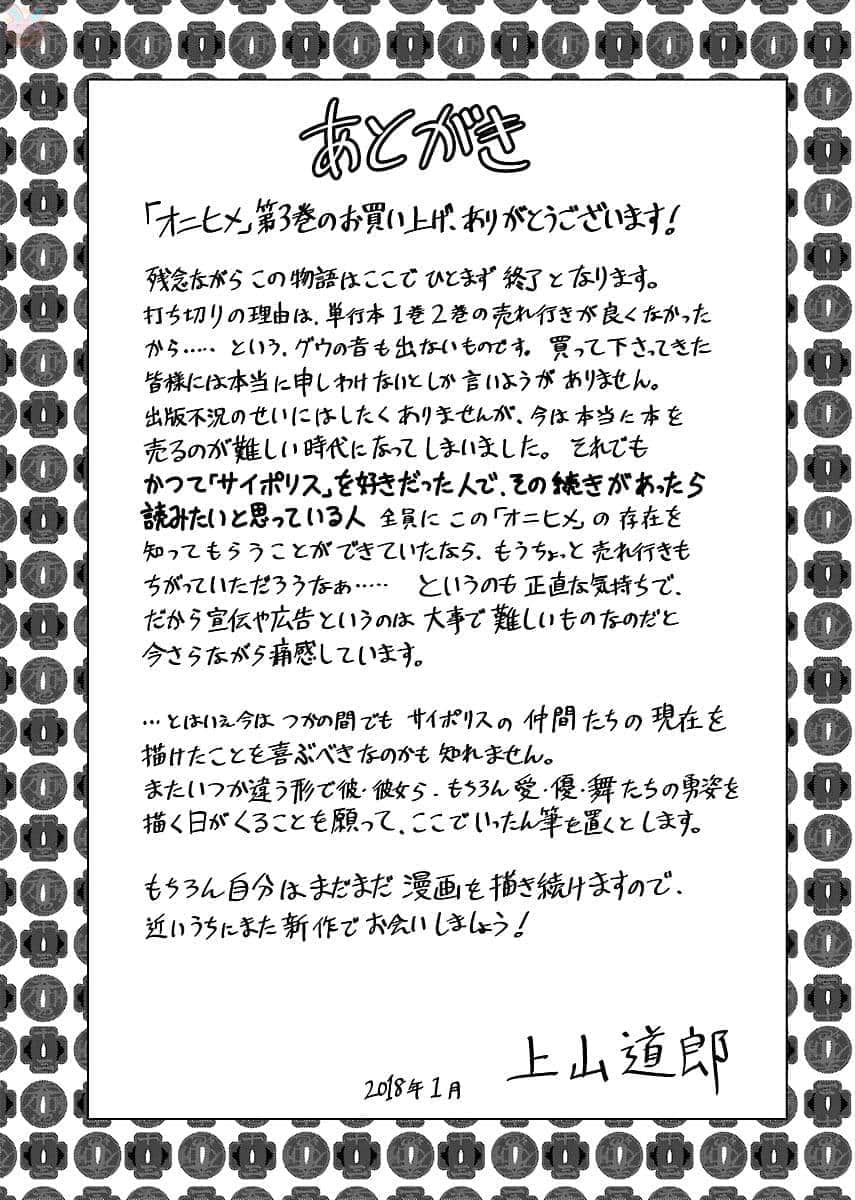 あとがき
「オニヒメ」第3巻のお買い上げ、ありがとうございます!
残念ながらこの物語はここでひとまず終了となります。
打ち切りの理由は、単行本1巻2巻の売れ行きが良くなかった
から‥‥‥という、グウの音も出ないものです。買って下さってきた
皆様には本当に申しわけないとしか言いようがありません。
出版不況のせいにはしたくありませんが、今は本当に本を
売るのが難しい時代になってしまいました。それでも
かつて「サイポリス」を好きだった人で、その続きがあったら
読みたいと思っている人全員にこの「オニヒメ」の存在を
知ってもらうことができていたなら、もうちょっと売れ行きも
ちがっていただろうなぁ‥‥‥というのも正直な気持ちで、
だから宣伝や広告というのは大事で難しいものなのだと
今さらながら痛感しています。
…とはいえ今はつかの間でもサイポリスの仲間たちの現在を
描けたことを喜ぶべきなのかも知れません。
またいつか違う形で彼・彼女ら、もちろん愛・優・舞たちの勇姿を
描く日がくることを願って、ここでいったん筆を置くとします。
もちろん自分はまだまだ漫画を描き続けますので、
近いうちにまた新作でお会いしましょう!
上山道郎
2018年1月